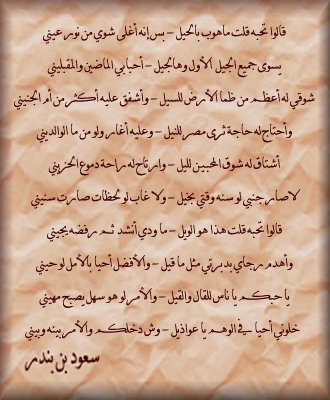 قالوا تحبه قلت ماهوب بالحيل - بس إنه أغلى شوي من نور عيني
يسوى جميع الجيل الأول وهالجيل - أحبابي الماضين والمقبليني
شوقي له أعظم من ظما الأرض للسيل - وأشفق عليه أكثر من أم الجنيني
وأحتاج له حاجة ثرى مصر للنيل - وعليه أغار ولو من ما الوالديني
أشتاق له شوق المحبين لليل - وارتاح له راحة دموع الحزيني
لا صار جنبي لو سنه وقتي بخيل - ولا غاب لو لحظات صارت سنيني
قالوا تحبه قلت هذا هو الويل - ما ودي أنشد ثم رفضه يجيني
وأهدم رجاي بدبرتي مثل ما قيل - والأفضل أحيا بالأمل لو حيني
يا حبكم يا ناس للقال والقيل - والأمر لو هو سهل يصبح مهيني
خلوني أحيا في الوهم يا عواذيل - وش دخلكم والأمر بينه وبيني
سعود بن بندر